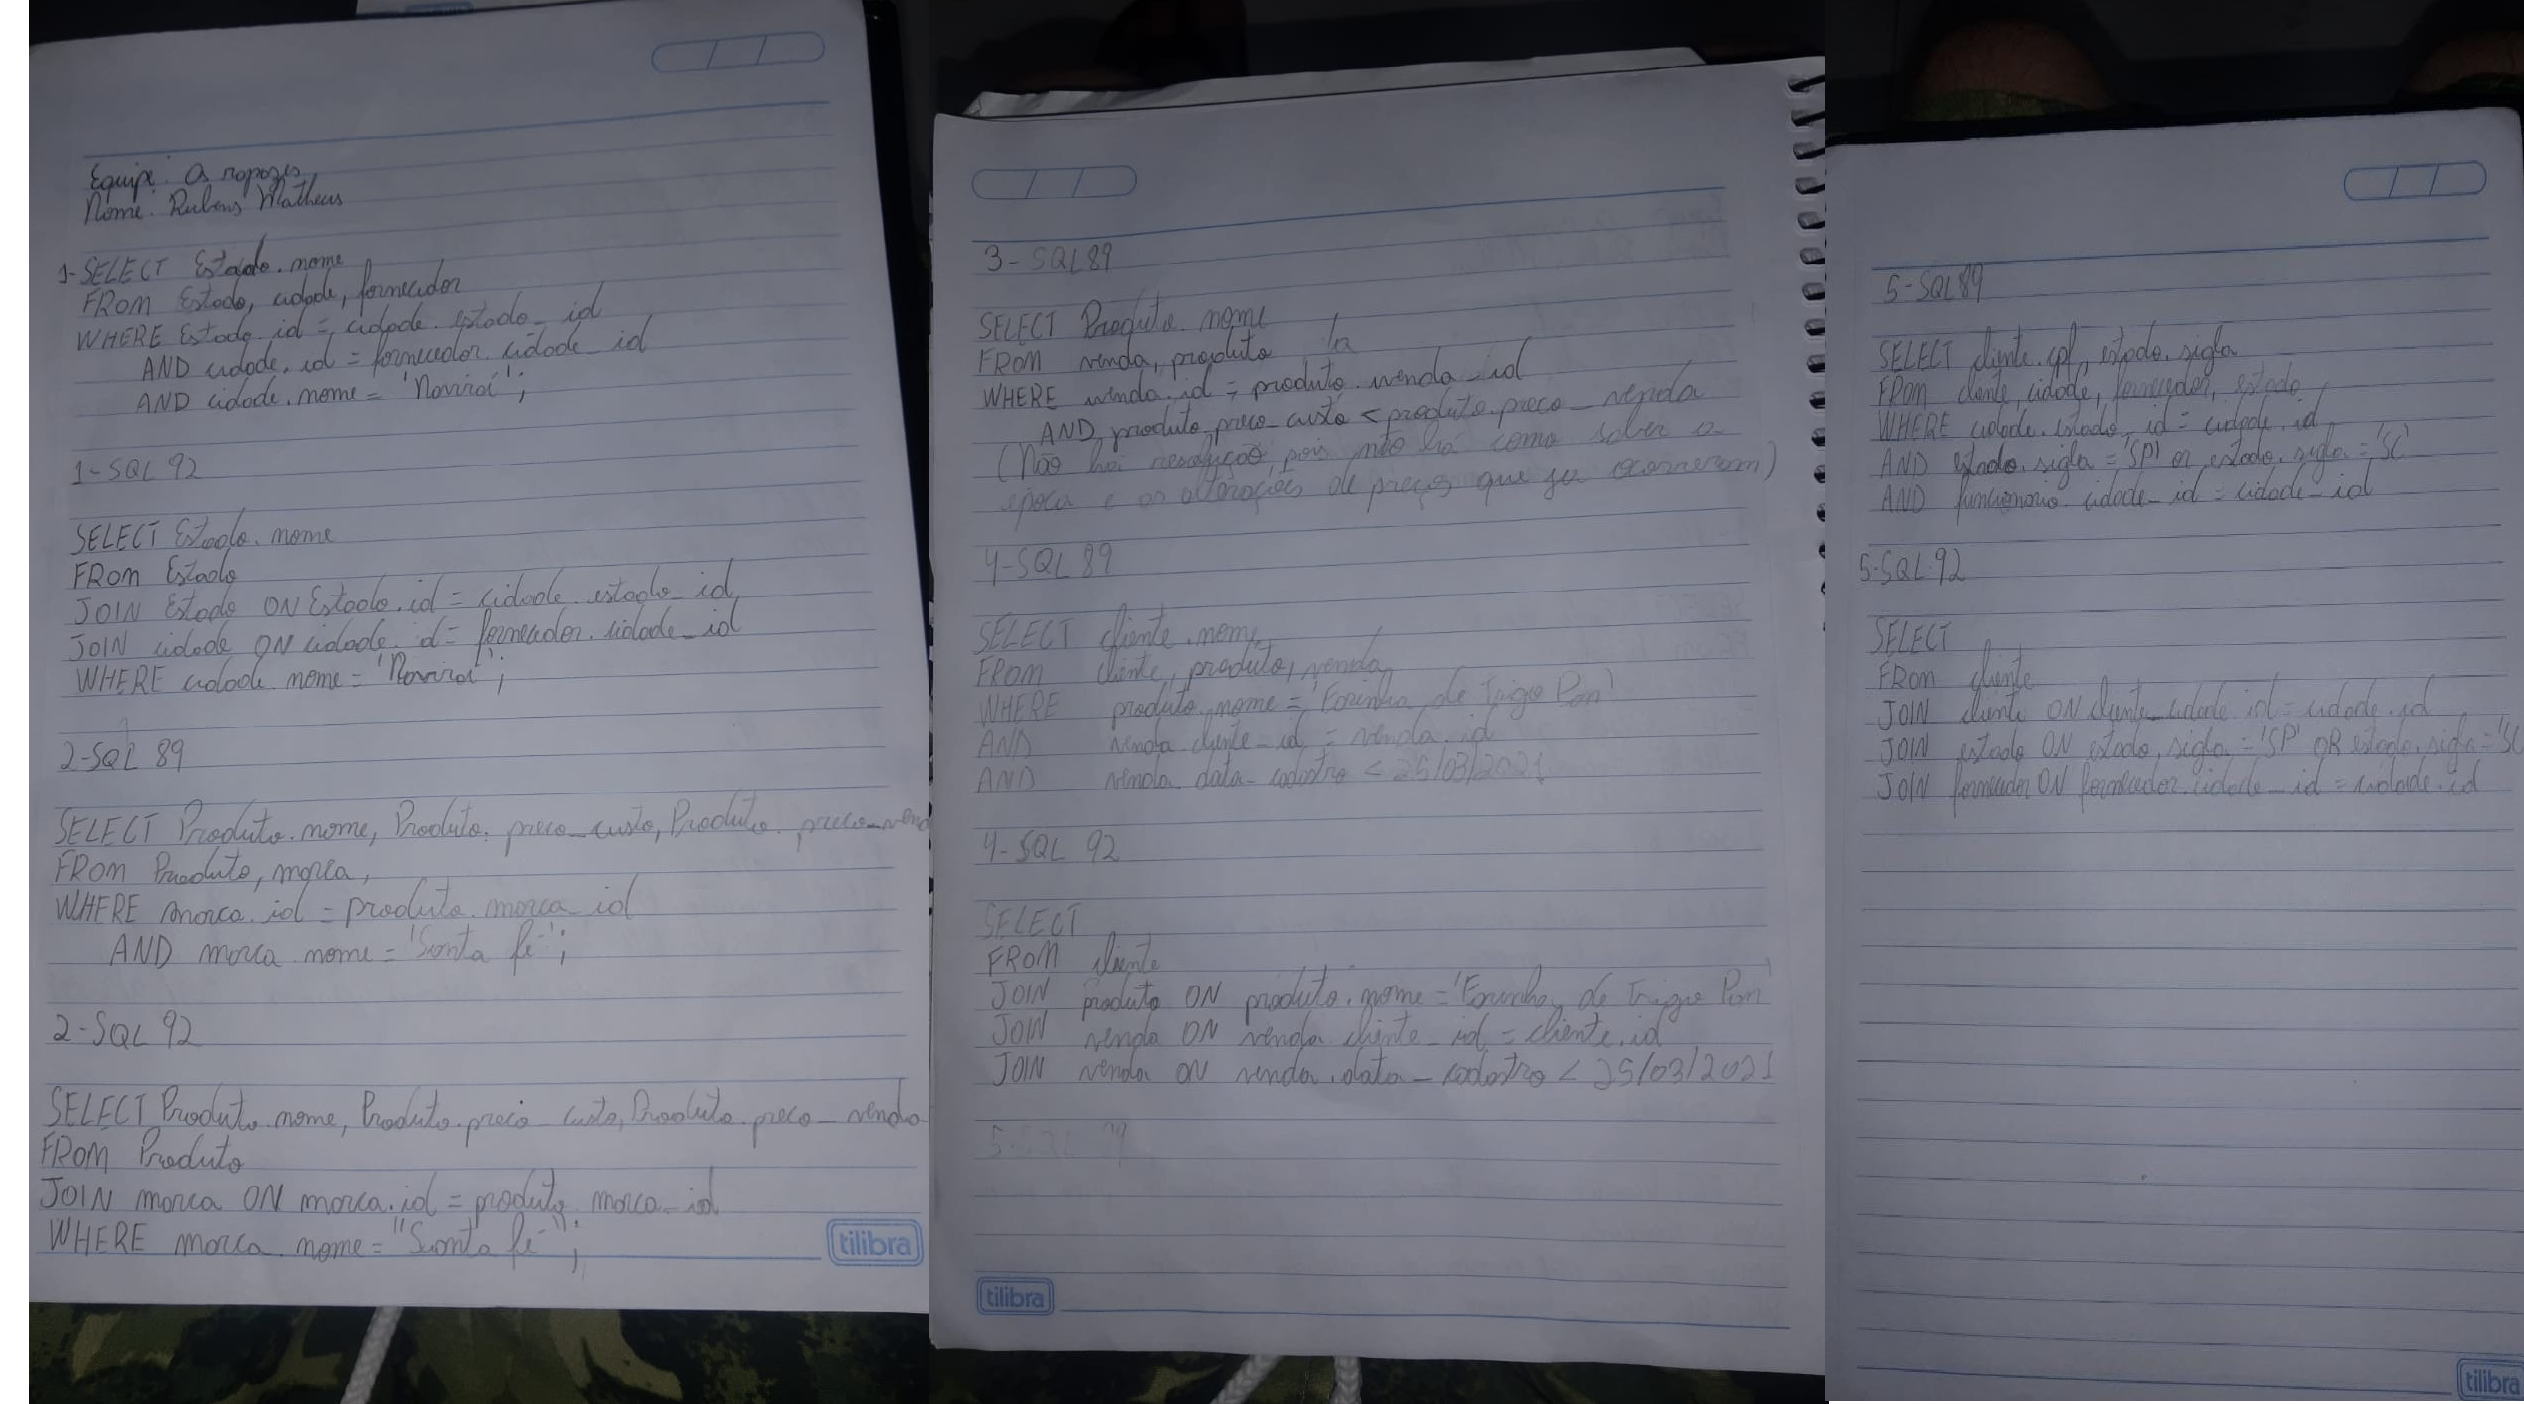 Equipe: Os rapozes
Nome: Rubens Matheus
1-SELECT Estado.nome
FROM Estado, cidade, fornecedor
WHERE Estado.id = cidade.estado_id
AND cidade.id = fornecedor.cidade_id
AND cidade.nome = 'Naviraí';
1-SQL 92
SELECT Estado.nome
FROM Estado
JOIN Estado ON Estado.id = cidade.estado_id
JOIN cidade ON cidade.id = fornecedor.cidade_id
WHERE cidade.nome = 'Naviraí';
2-SQL 89
SELECT Produto.nome, Produto.preco_custo, Produto.preco_vend
FROM Produto, marca,
WHERE marca.id = produto.marca_id
AND marca.nome = 'Santa fé';
2-SQL 92
SELECT Produto.nome, Produto.preco_custo, Produto.preco_venda
FROM Produto
JOIN marca ON marca.id = produto.marca_id
WHERE marca.nome = "Santa fé";
tilibra
3-SQL89
SELECT Produto.nome
FROM venda, produto
WHERE venda.id = produto.venda_id
AND produto.preco_custo < produto.preco_venda
(Não há resolução, pois não há como saber a
época e as alterações de preços que ja ocorreram)
4-SQL 89
SELECT cliente.nome,
FROM cliente, produto, venda
WHERE produto.nome = 'Farinha de Trigo Pan'
AND venda.cliente_id = venda.id
AND venda.data_cadastro < 25/03/2021
4-SQL 92
SELECT
FROM cliente
JOIN produto ON produto.nome = 'Farinha de Trigo Pan'
JOIN venda ON venda.cliente_id = cliente.id
JOIN venda ON venda.data_cadastro < 25/03/2021
tilibra
5-SQL89
SELECT cliente.cpf, estado.sigla
FROM cliente, cidade, fornecedor, estado
WHERE cidade.estado_id = cidade.id
AND estado.sigla = 'SP' or estado.sigla = 'SC'
AND funcionario.cidade_id = cidade_id
5-SQL 92
SELECT
FROM cliente
JOIN cliente ON cliente_cidade id = cidade.id
JOIN estado ON estado.sigla = 'SP' OR estado.sigla = 'SC
JOIN fornecedor ON fornecedor.cidade_id = cidade.id
tilibra